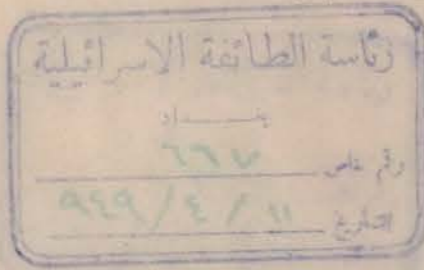 رئاسة الطائفة الاسرائيلية
بغـــداد
رقم خاص ٦٦٧
التاريخ ١١ / ٤ / ٩٤٩